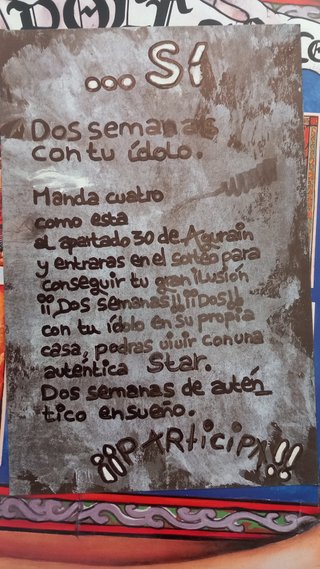 ...Sí
Dos semanas
con tu ídolo.
Manda cuatro
como esta
al apartado 30 de Agurain
y entraras en el sorteo para
conseguir tu gran ilusión
¡¡Dos semanas!! ¡¡Dos!!
con tu ídolo en su propia
casa, podras vivir con una
autentica Star.
Dos semanas de autén
tico ensueño.
¡¡PARticiPA!!